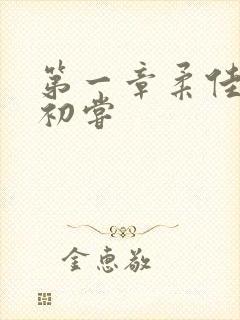 第一章柔佳
初尝
金惠敬